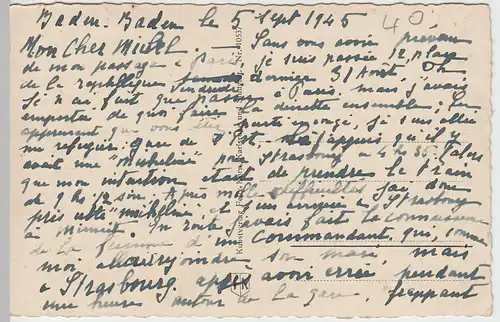 Baden-Baden le 5 Sept 1945
40
Mon Cher Michel. Sans vous avoir prévenu
de mon passage à Paris, je suis passée Place
de la république vendredi dernier 31 Août. Je
Je n'ai fait que passer à Paris, mais j'avais
emporté de quoi faire la dînette ensemble. En
apprenant que vous étiez je suis allée
me réfugier gare de l'Est. Là j'appris qu'il y
avait une "micheline" pour Strasbourg à 4 h 35. alors
que mon intention était de prendre le train
de 9 h 12 soir. Après mille difficultés j'ai donc
pris cette "micheline" et suis arrivée à Strasbourg
à minuit. En route j'avais fait la connaissance
de la femme d'un Commandant qui, comme
moi allait rejoindre son mari, mais
à Strasbourg après avoir erré pendant
une heure autour de la gare, frappant